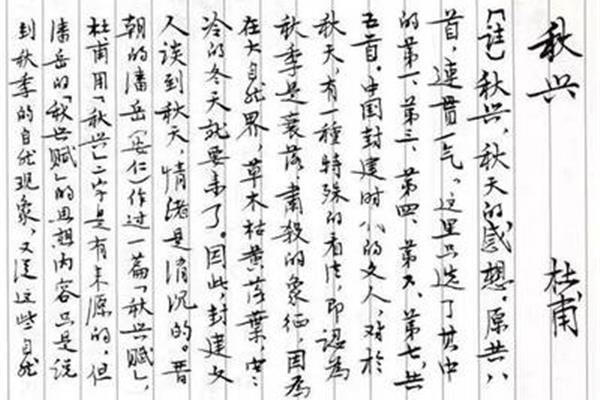 秋兴 杜甫
「注」秋兴，秋天的感想。原共八
首，連貫一气。这里只选了其中
的第一、第三、第四、第六、第七，共
五首。中国封建时代的文人，对於
秋天，有一種特殊的看法，即認为
秋季是衰落肅殺的象征，因为
在大自然界，草木枯黄落葉，寒
冷的冬天就要来了。因此，封建文
人谈到秋天，情绪是消沉的。晋
朝的潘岳（安仁）作过一篇「秋兴赋」，
杜甫用「秋兴」二字是有来源的，但
潘岳的「秋兴赋」的思想内容只是说
到秋季的自然现象，又从这些自然